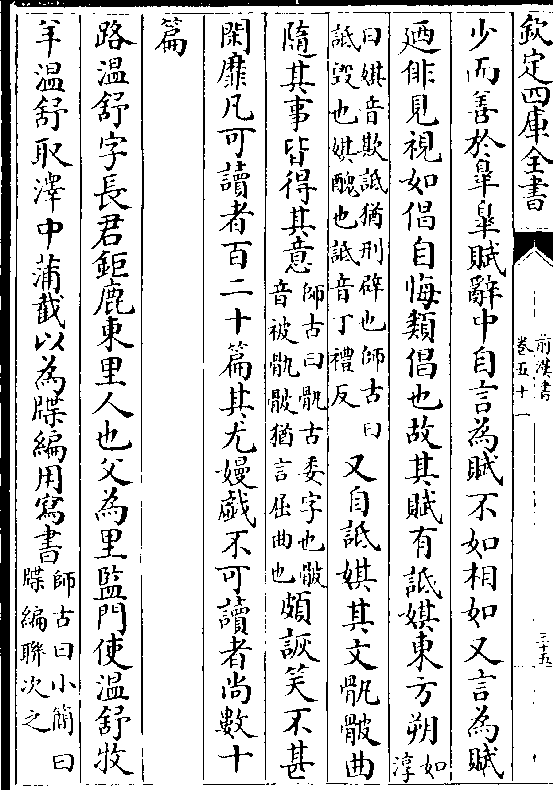 欽定四庫全書
前漢書
卷五十一
三十五
少而善於臯臯賦辭中自言為賦不如相如又言為賦
廼俳見視如倡自悔類倡也故其賦有詆娸東方朔如淳
曰娸音欺詆猶刑辟也師古曰詆毀也娸醜也詆音丁禮反又自詆娸其文骫骳曲
隨其事皆得其意師古曰骫古委字也骳音被骫骳猶言屈曲也頗詼笑不甚
閑靡凡可讀者百二十篇其尤嫚戲不可讀者尚數十
篇
路温舒字長君鉅鹿東里人也父為里監門使温舒牧
羊温舒取澤中蒲截以為牒編用寫書師古曰小簡曰牒編聯次之